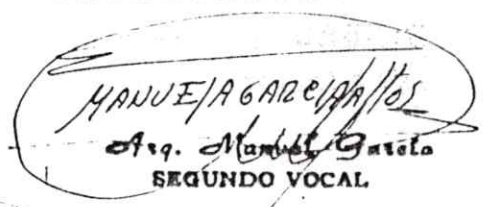 MANUEL A GARCIA
Arq. Manuel García
SEGUNDO VOCAL